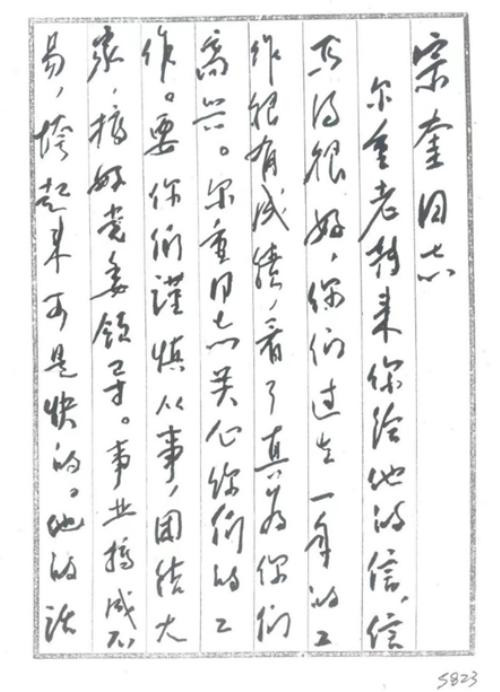 宗奎同志
尔重老转来你给他的信，信
写得很好，你们过去一年的工
作很有成绩，看了真为你们
高兴。尔重同志关心你们的工
作。要你们谨慎从事，团结大
家，搞好党委领导。事业搞成不
易，垮起来可是快的。他的话
5823